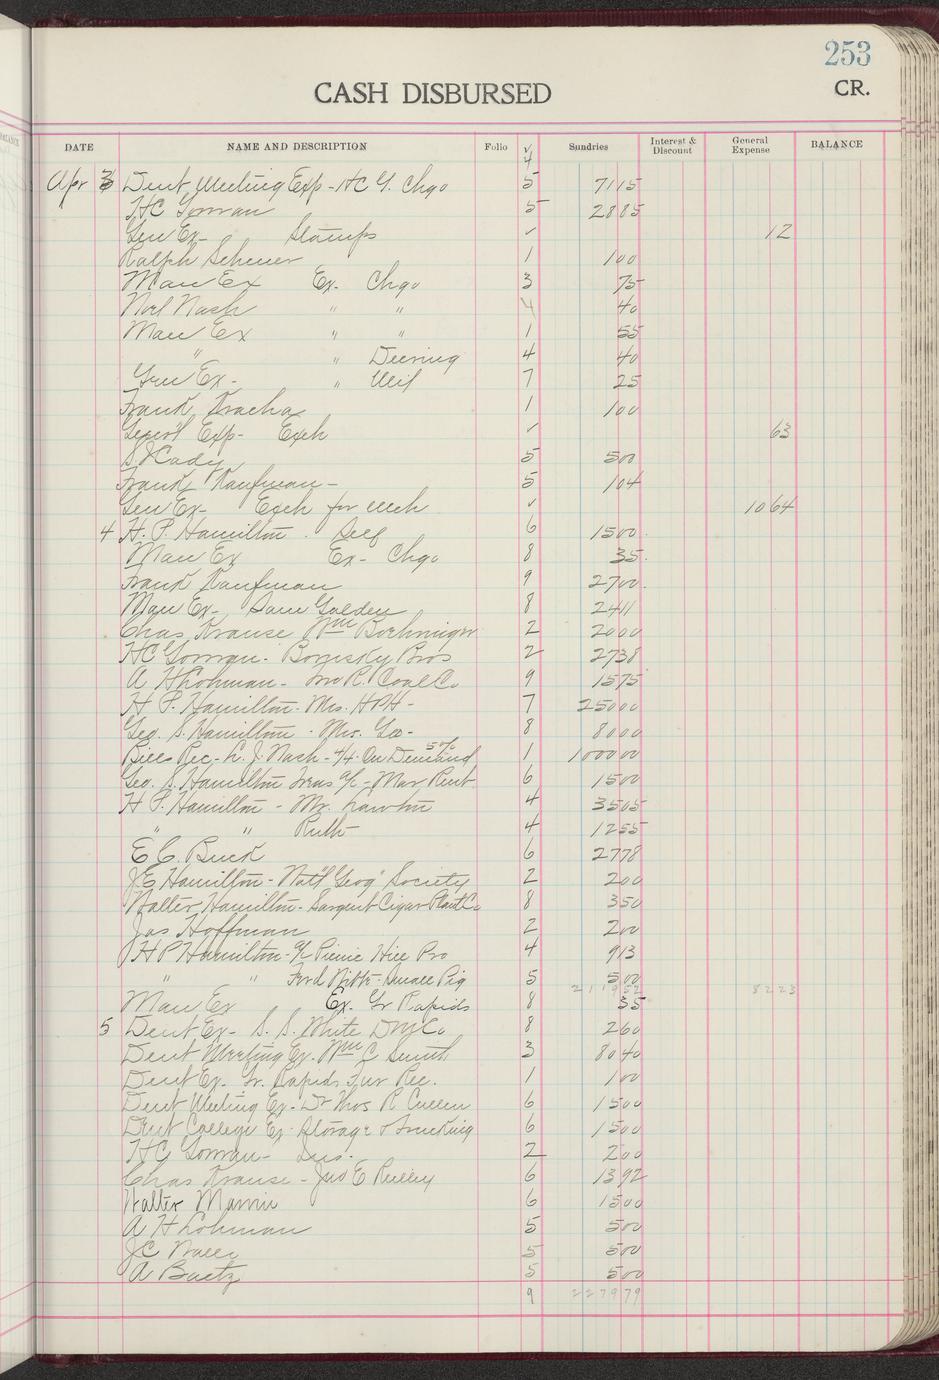 253
CASH DISBURSED
CR.
DATE NAME AND DESCRIPTION Folio √ Sundries Interest & Discount General Expense BALANCE
4
Apr 3 Dent Meeting Exp - HC G. Chgo 5 7115
HC Gorman 5 2885
Gen Ex- Stamps √ 12
Ralph Scheuer 1 100
Man Ex Ex- Chgo 3 75
Noel Nash " " 4 40
Man Ex " " 1 55
" " Deering 4 40
Gen Ex- " Mil 7 25
Frank Kracha 1 100
Gener'l Exp- Exch √ 63
S J Cady 5 500
Frank Kaufman - 5 104
Gen Ex- Exch for √ 1064
4 H. P. Hamilton . Self 6 1500
Man Ex Ex- Chgo 8 35
Frank Kaufman 9 2700
Man Ex- Sam Golden 8 2411
Chas Krause Wm Boehminger 2 2000
HC Gorman - Bros 2 2738
A H Lohman - R. Coal Co 9 1575
H P. Hamilton - Mrs. HPH - 7 25000
Geo. S. Hamilton - Mrs. Geo - 8 8000
Bills Rec - L. J. Nash - 4/4 - On Demand 5% 1 100000
Geo. S. Hamilton Treas a/c - Mar Rent 6 1500
H P. Hamilton - Mr. Lawton 4 3505
" " Ruth 4 1255
E C. Buck 6 2778
J E Hamilton - Nat'l "Geog" Society 2 200
Walter Hamilton - Sargent Cigar Plant Co 8 350
Jas Hoffman 2 200
H P Hamilton - a/c Picnic Hill Pro 4 913
" " Ferd - Pig 5 500
211952 8223
Man Ex Ex. Gr Rapids 8 35
5 Dent Ex- S. S. White D M Co 8 260
Dent Meeting Ex. Wm C Smith 3 8040
Dent Ex- Gr. Rapids Fur Rec. 1 100
Dent Meeting Ex - Dr Thos R Cullen 6 1500
Dent College Ex - Storage & Trucking 6 1500
HC Gorman - Ins. 2 200
Chas Krause - Jno E Reilly 6 1392
Walter 6 1500
A H Lohman 5 500
J C 5 500
A Baetz 5 500
9 227979